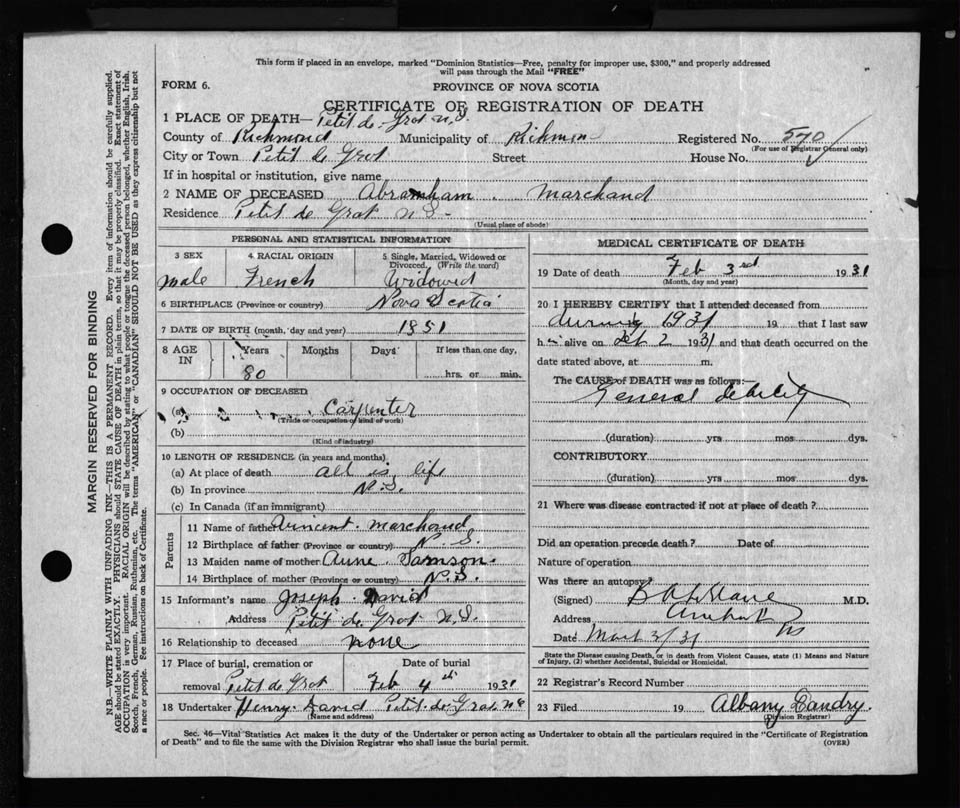 This form if placed in an envelope, marked "Dominion Statistics—Free, penalty for improper use, $300," and properly addressed
will pass through the Mail "FREE"
FORM 6.
PROVINCE OF NOVA SCOTIA
CERTIFICATE OF REGISTRATION OF DEATH
1 PLACE OF DEATH— Petit de Grat N.S.
County of Richmond Municipality of Richmond Registered No. 570
(For use of Registrar General only)
City or Town Petit de Grat Street House No.
If in hospital or institution, give name
2 NAME OF DECEASED Abramham Marchand
Residence Petit de Grat N.S.
(Usual place of abode)
PERSONAL AND STATISTICAL INFORMATION
3 SEX 4 RACIAL ORIGIN 5 Single, Married, Widowed or Divorced. (Write the word)
male French Widowed
6 BIRTHPLACE (Province or country) Nova Scotia
7 DATE OF BIRTH (month, day and year) 1851
8 AGE IN Years Months Days If less than one day,
80 hrs. or min.
9 OCCUPATION OF DECEASED
(a) Carpenter
(Trade or occupation or kind of work)
(b)
(Kind of industry)
10 LENGTH OF RESIDENCE (in years and months)
(a) At place of death all is life
(b) In province N.S.
(c) In Canada (if an immigrant)
Parents
11 Name of father Vincent Marchand
12 Birthplace of father (Province or country) N.S.
13 Maiden name of mother Anne Samson
14 Birthplace of mother (Province or country) N.S.
15 Informant's name Joseph David
Address Petit de Grat N.S.
16 Relationship to deceased none
17 Place of burial, cremation or removal Petit de Grat Date of burial Feb 4th 1931
18 Undertaker Henry David Petit de Grat N.S.
(Name and address)
MEDICAL CERTIFICATE OF DEATH
19 Date of death Feb 3rd 1931
(Month, day and year)
20 I HEREBY CERTIFY that I attended deceased from
during 1931 19 that I last saw
h alive on 2 1931 and that death occurred on the
date stated above, at m.
The CAUSE of DEATH was as follows:—
General debility
(duration) yrs mos dys.
CONTRIBUTORY
(duration) yrs mos dys.
21 Where was disease contracted if not at place of death?
Did an operation precede death? Date of
Nature of operation
Was there an autopsy?
(Signed) M.D.
Address Arichat NS
Date 3/31
State the Disease causing Death, or in death from Violent Causes, state (1) Means and Nature
of Injury, (2) whether Accidental, Suicidal or Homicidal.
22 Registrar's Record Number
23 Filed 19 Albany Landry.
(Division Registrar)
Sec. 46—Vital Statistics Act makes it the duty of the Undertaker or person acting as Undertaker to obtain all the particulars required in the "Certificate of Registration
of Death" and to file the same with the Division Registrar who shall issue the burial permit. (OVER)
MARGIN RESERVED FOR BINDING
N.B.—WRITE PLAINLY WITH UNFADING INK—THIS IS A PERMANENT RECORD. Every item of information should be carefully supplied.
AGE should be stated EXACTLY. PHYSICIANS should STATE CAUSE OF DEATH in plain terms, so that it may be properly classified. Exact statement of
OCCUPATION is very important. RACIAL ORIGIN will be described by stating to what people or tongue the deceased person belonged, whether English, Irish,
Scotch, French, German, Russian, Ruthenian, etc. The terms "AMERICAN" or "CANADIAN" SHOULD NOT BE USED as they express citizenship but not
a race or people. Fee instructions on back of Certificate.